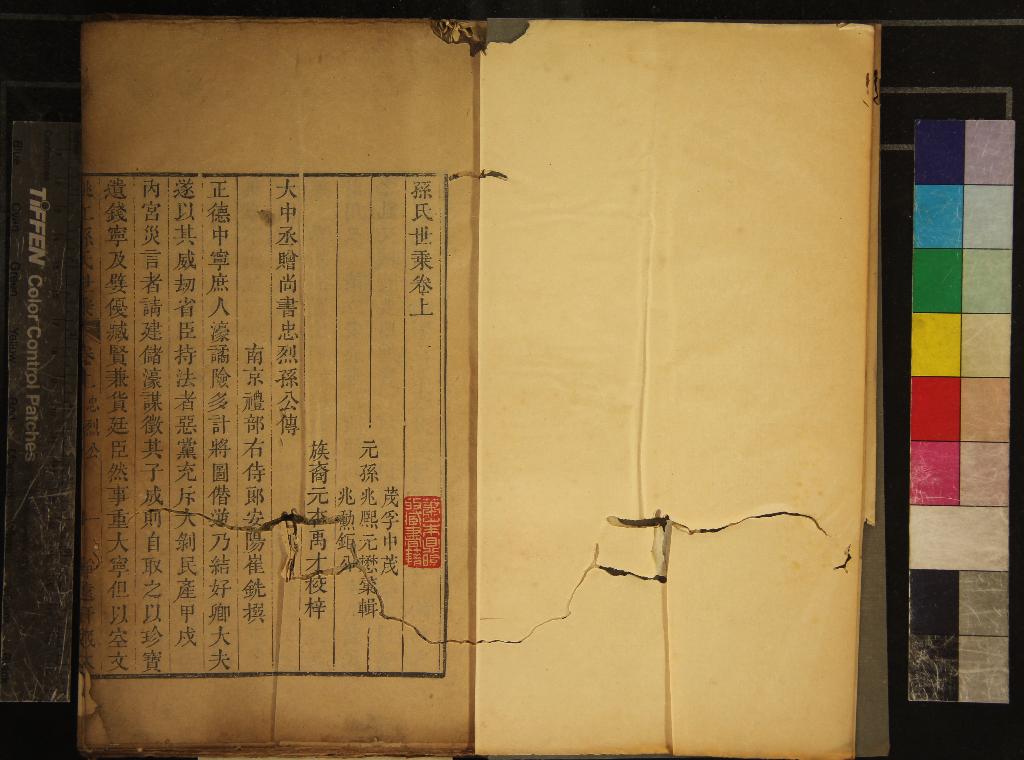 孫氏世乘卷上
茂孚中茂
元孫兆熙元懋彙輯
兆勲鉅
族裔元杏禹才校梓
大中丞贈尚書忠烈孫公傳
南京禮部右侍郎安陽崔銑撰
正德中寧庶人濠譎險多計將圖僭逆乃結好卿大夫
遂以其威刼省臣持法者惡黨充斥大剝民產甲戌
內宮災言者請建儲濠謀徵其子成則自取之以珍寶
遺錢寧及嬖優臧賢兼貨廷臣然事重大寧但以空文
孫氏世乘 卷上 忠烈公 一
TIFFEN Color Control Patches